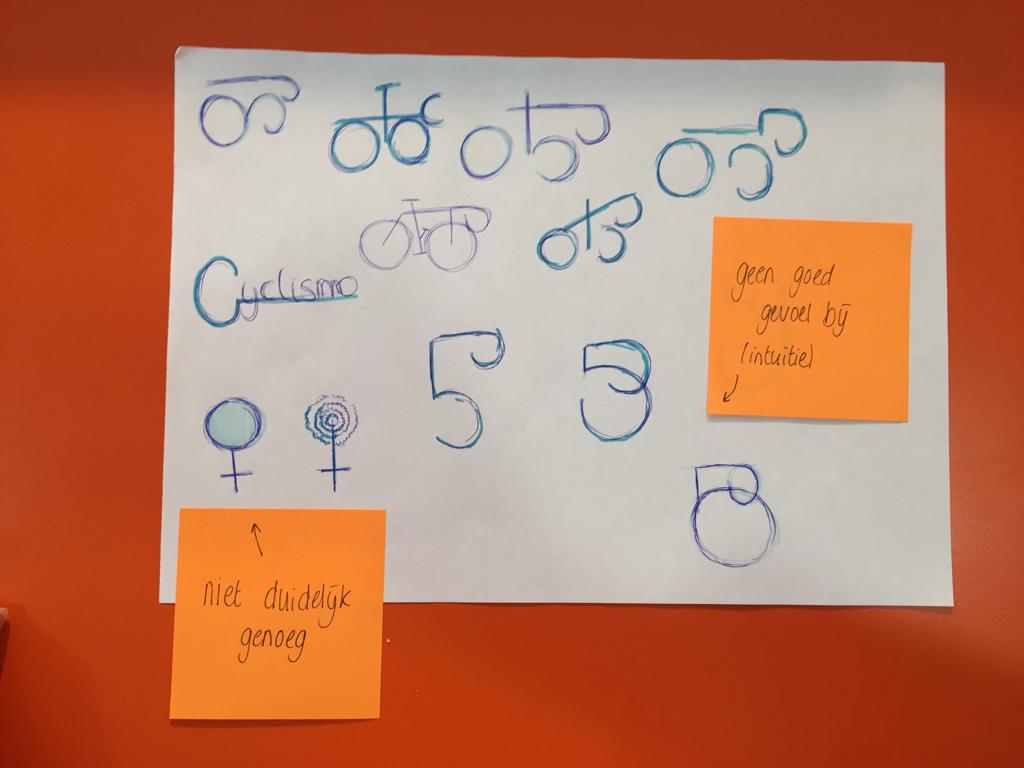 Cyclismo
geen goed
gevoel bij
(intuïtie)
niet duidelijk
genoeg